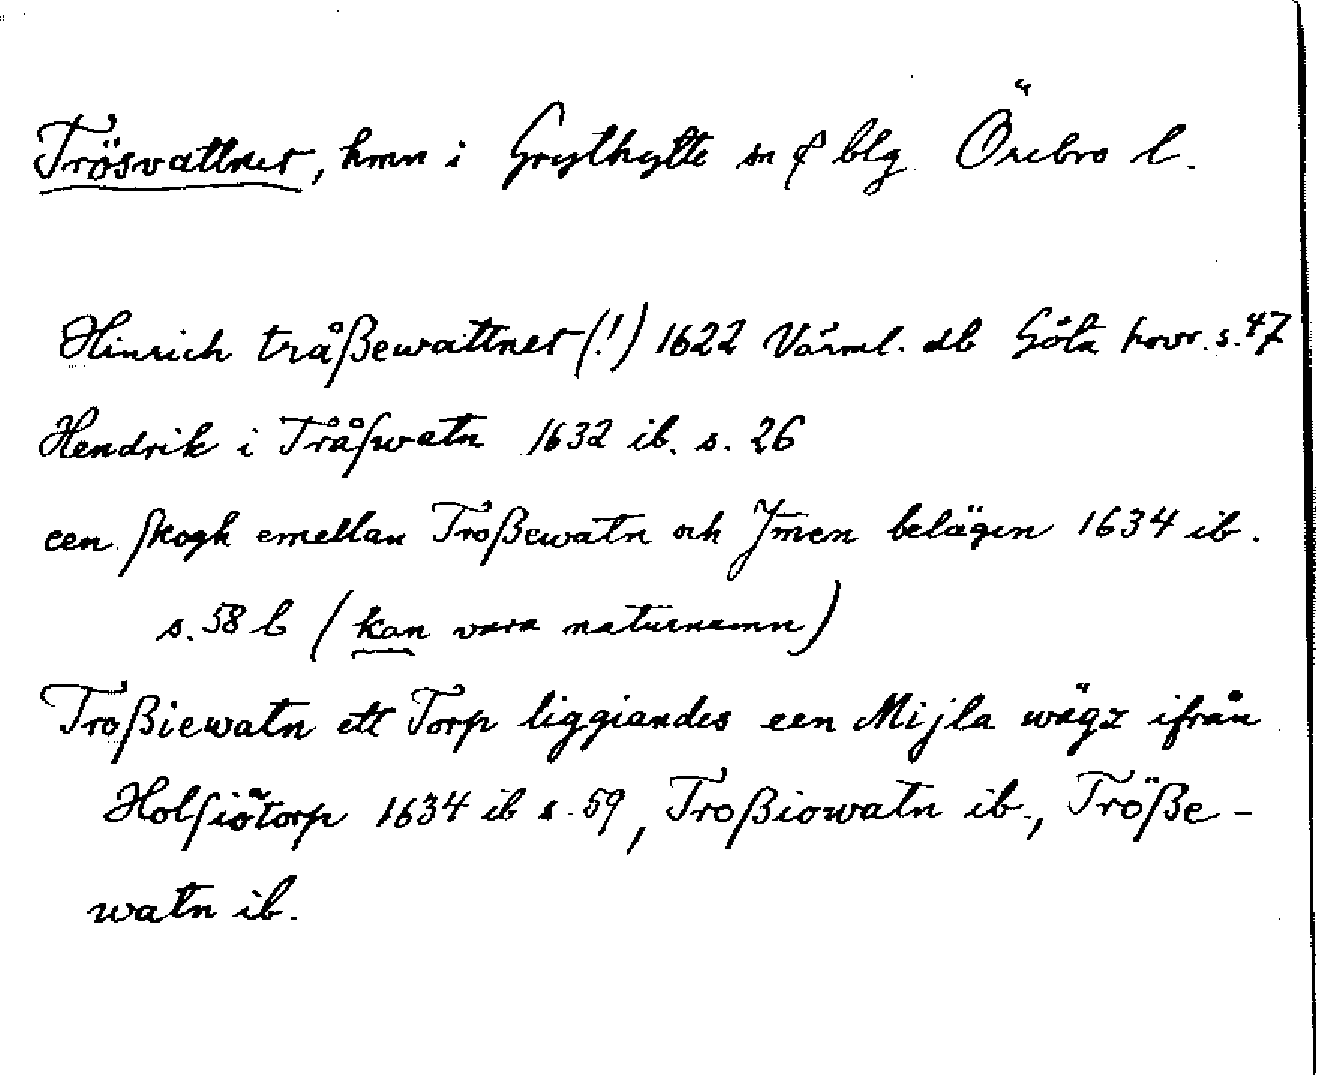 Trösvattnet, hmn i Grythytte sn & blg Örebro l.
Hinrich tråßewattnet (!) 1622 Värml. db Göta hovr. s. 47
Hendrik i Trååſwatn 1632 ib. s. 26
een ſkogh emellan Troßewatn och Ymen belägen 1634 ib.
s. 58 b (kan vara naturnamn)
Troßiewatn ett Torp liggiandes een Mijla wägz ifrån
Holſiötorp 1634 ib s. 59, Troßiowatn ib., Tröße-
watn ib.